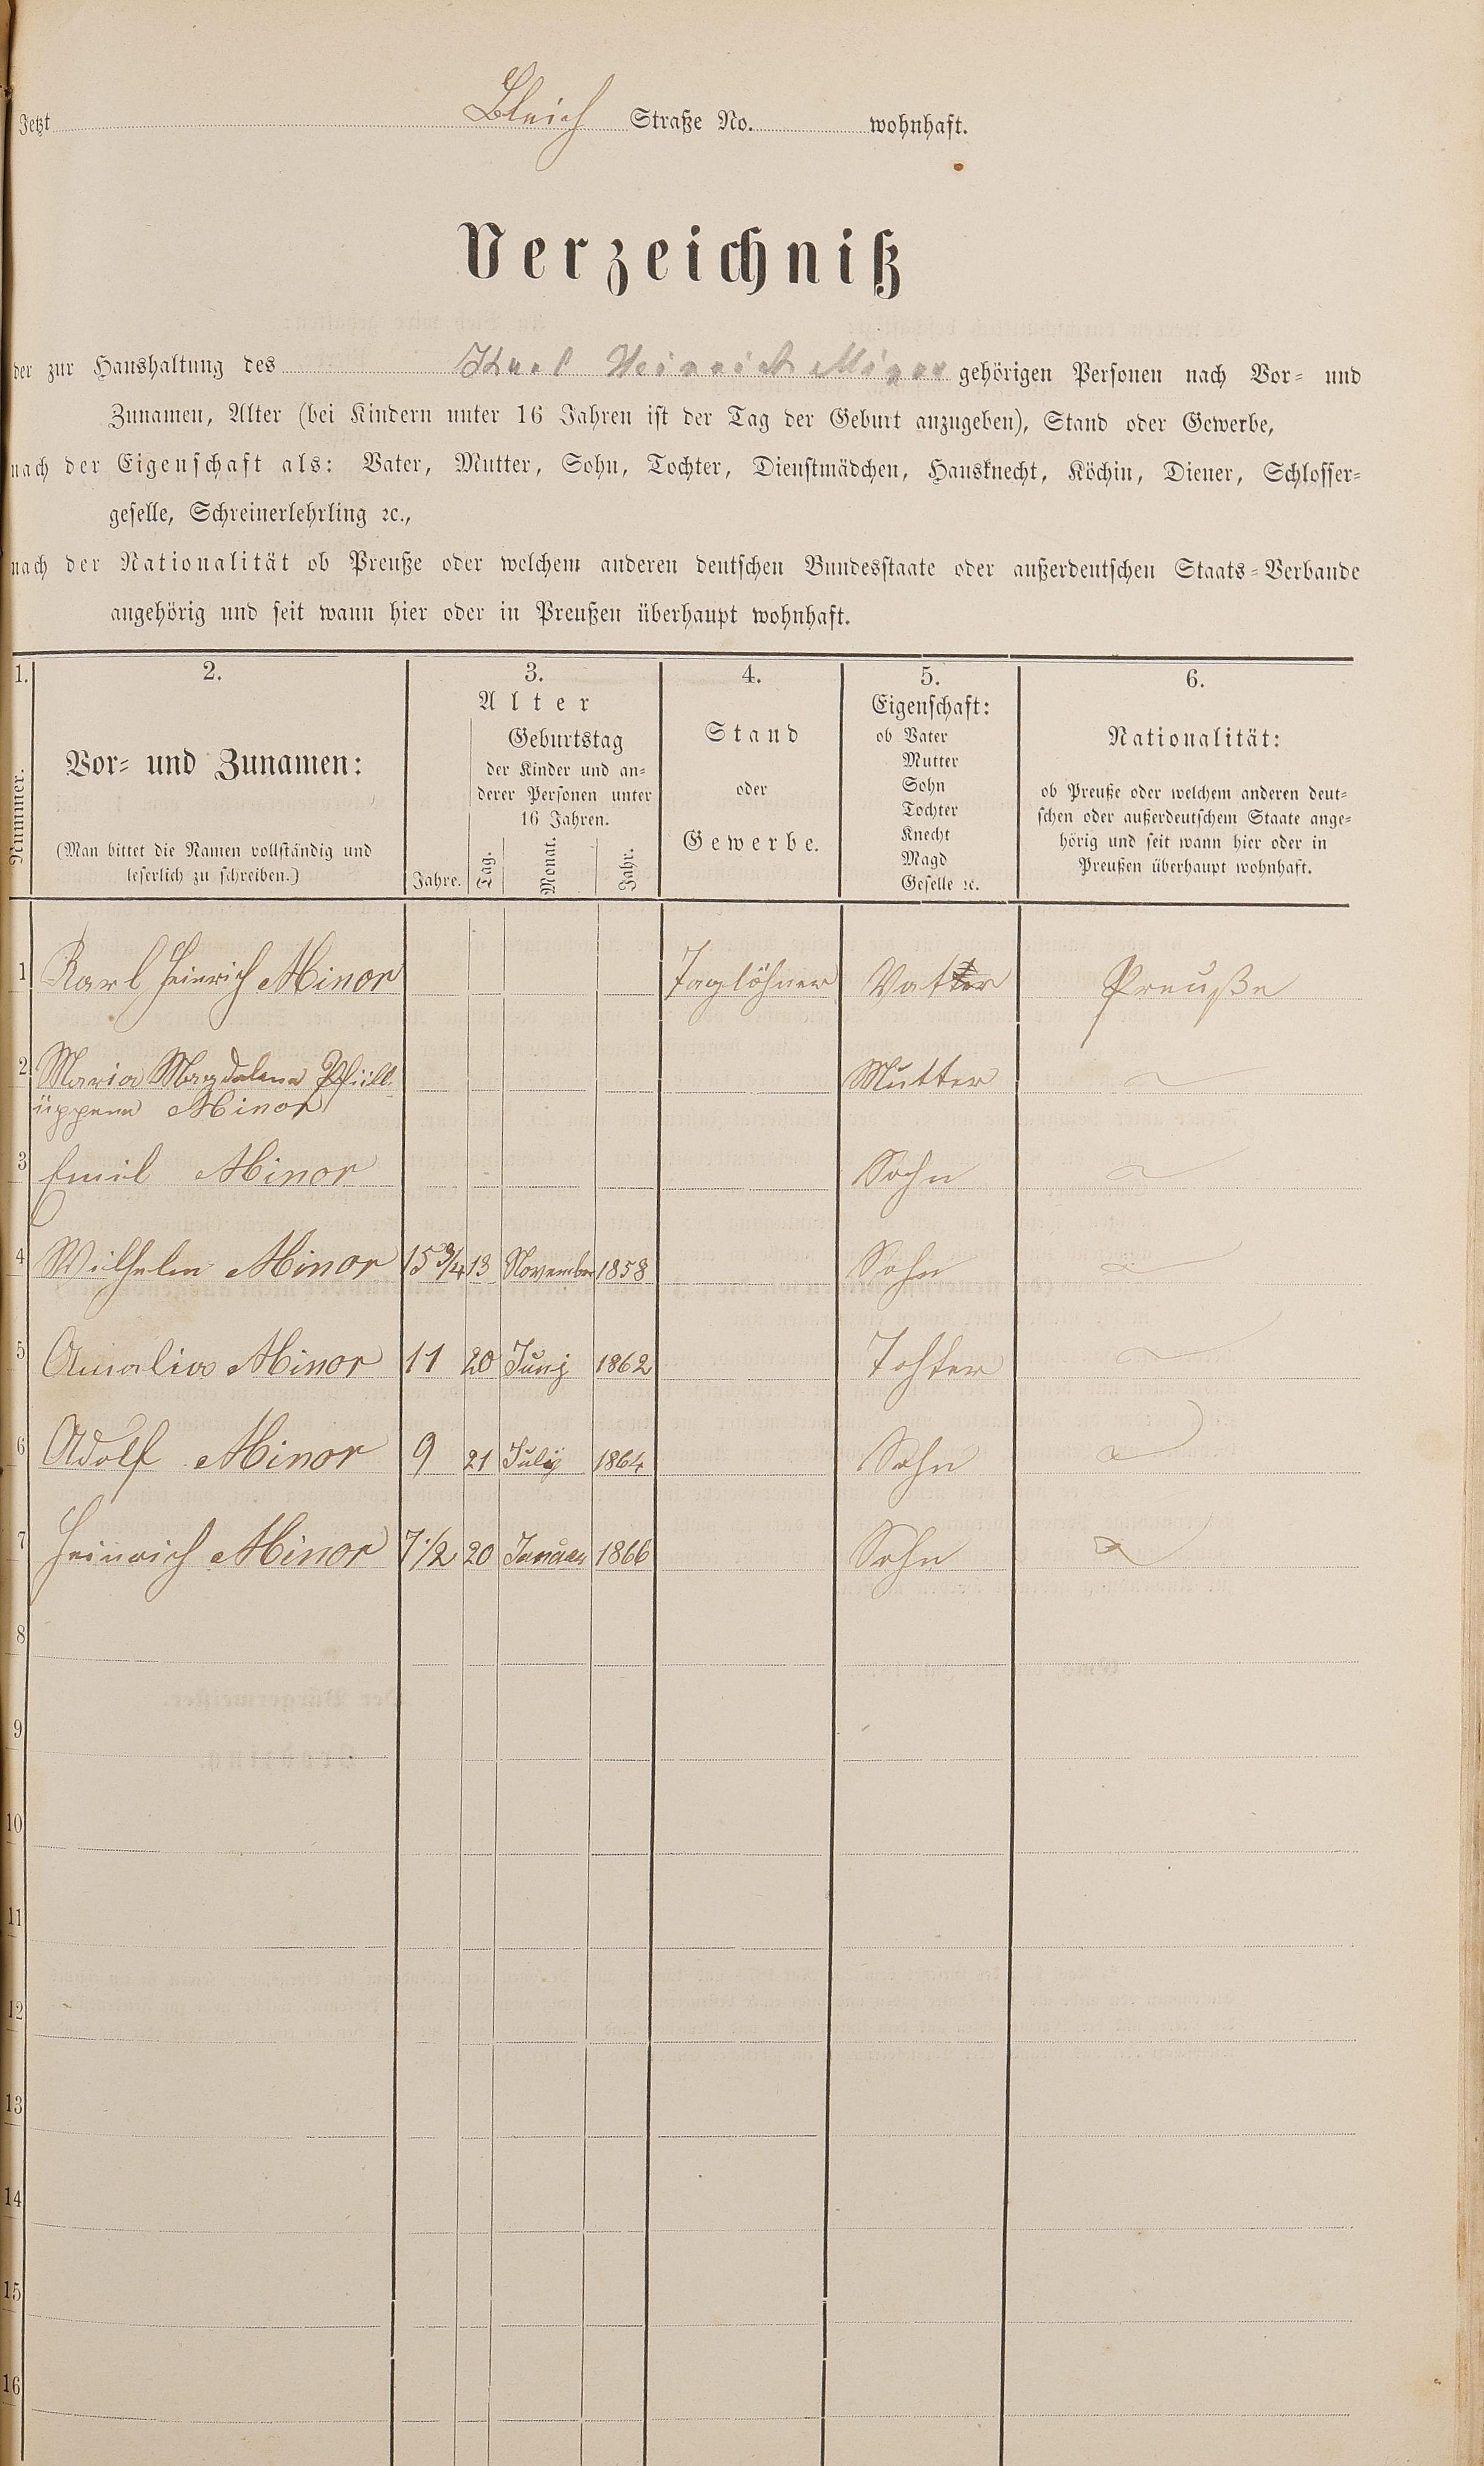 Jetzt Bleich Straße No. wohnhaft.
Verzeichniß
der zur Haushaltung des Karl Heinrich Minor gehörigen Personen nach Vor- und
Zunamen, Alter (bei Kindern unter 16 Jahren ist der Tag der Geburt anzugeben), Stand oder Gewerbe,
nach der Eigenschaft als: Vater, Mutter, Sohn, Tochter, Dienstmädchen, Hausknecht, Köchin, Diener, Schlosser-
geselle, Schreinerlehrling ꝛc.,
nach der Nationalität ob Preuße oder welchem anderen deutschen Bundesstaate oder außerdeutschen Staats-Verbande
angehörig und seit wann hier oder in Preußen überhaupt wohnhaft.
1. 2. 3. 4. 5. 6.
Nummer.
Vor- und Zunamen:
(Man bittet die Namen vollständig und
leserlich zu schreiben.)
Alter
Geburtstag
der Kinder und an-
derer Personen unter
16 Jahren.
Jahre. Tag. Monat. Jahr.
Stand
oder
Gewerbe.
Eigenschaft:
ob Vater
Mutter
Sohn
Tochter
Knecht
Magd
Geselle ꝛc.
Nationalität:
ob Preuße oder welchem anderen deut-
schen oder außerdeutschem Staate ange-
hörig und seit wann hier oder in
Preußen überhaupt wohnhaft.
1 Karl Heinrich Minor Taglöhner Vatter Preuße
2 Maria Magdalena
Minor Mutter
3 Emil Minor Sohn
4 Wilhelm Minor 15 3/4 13 November 1858 Sohn
5 Amalia Minor 11 20 Junj 1862 Tohter
6 Adolf Minor 9 21 July 1864 Sohn
7 Heinrich Minor 7 1/2 20 Januar 1866 Sohn
8
9
10
11
12
13
14
15
16